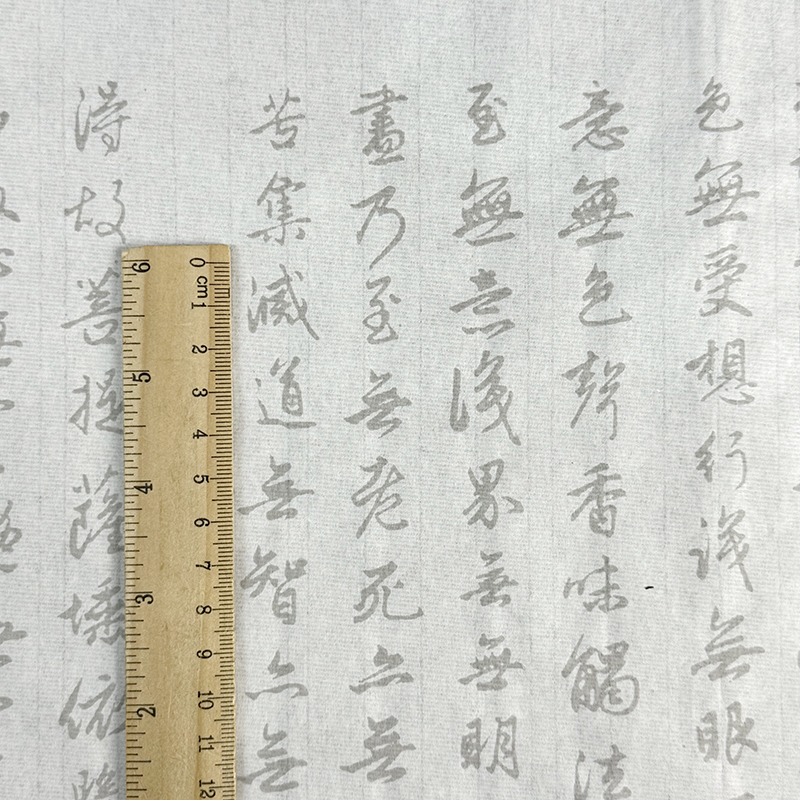 色無受想行識無眼
意無色聲香味觸法
至無意識界無無明
盡乃至無老死亦無
苦集滅道無智亦無
得故菩提薩埵依
0 cm 1 2 3 4 5 6 7 8 9 10 11 12
6 5 4 3 2